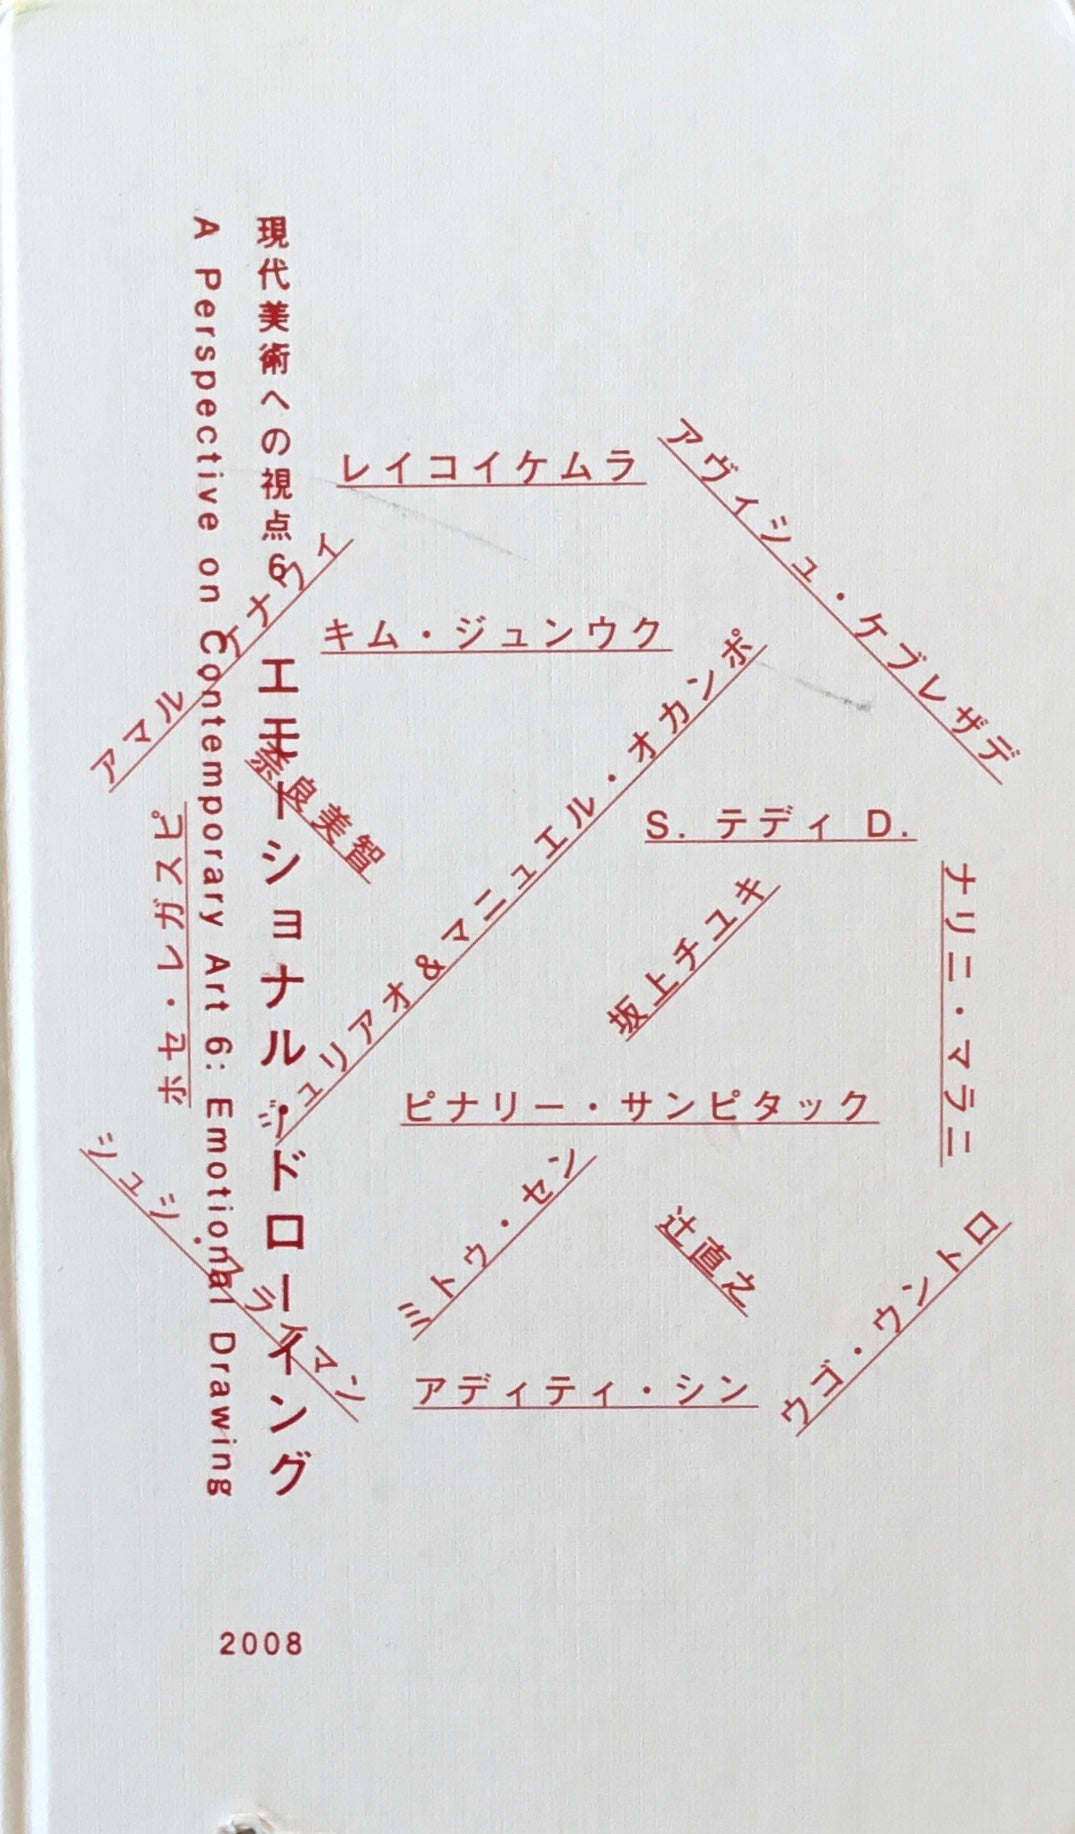 現代美術への視点6
エモーショナル・ドローイング
A Perspective on Contemporary Art 6: Emotional Drawing
レイコイケムラ
アヴィシュ・ケブレザデ
アマル・ケナウィ
キム・ジュンウク
ジュリアオ&マニュエル・オカンポ
奈良美智
S. テディ D.
ホセ・レガスピ
坂上チユキ
ナリニ・マラニ
ピナリー・サンピタック
シュシ・スライマン
ミトゥ・セン
辻直之
ウゴ・ウントロ
アディティ・シン
2008